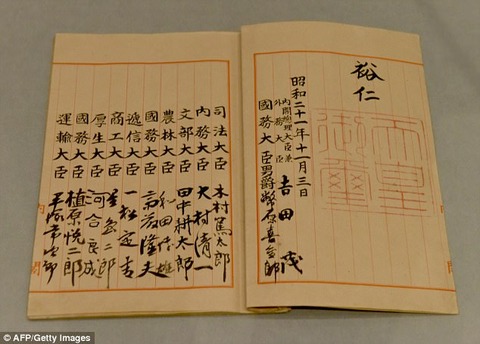 裕仁
天皇御璽
昭和二十一年十一月三日
内閣總理大臣兼
外務大臣 吉田茂
國務大臣 男爵幣原喜重郎
司法大臣 木村篤太郎
内務大臣 大村清一
文部大臣 田中耕太郎
農林大臣 和田博雄
國務大臣 斎藤隆夫
遞信大臣 一松定吉
商工大臣 星島二郎
厚生大臣 河合良成
國務大臣 植原悦二郎
運輸大臣 平塚常次郎
© AFP/Getty Images